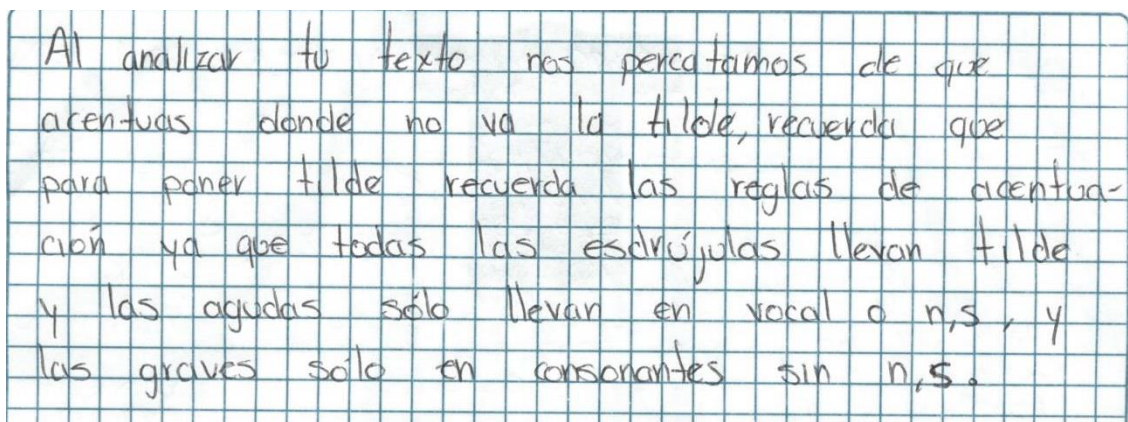 Al analizar tu texto nos percatamos de que
acentuas donde no va la tilde, recuerda que
para poner tilde recuerda las reglas de acentua-
ción ya que todas las esdrújulas llevan tilde
y las agudas sólo llevan en vocal o n,s, y
las graves sólo en consonantes sin n,s.